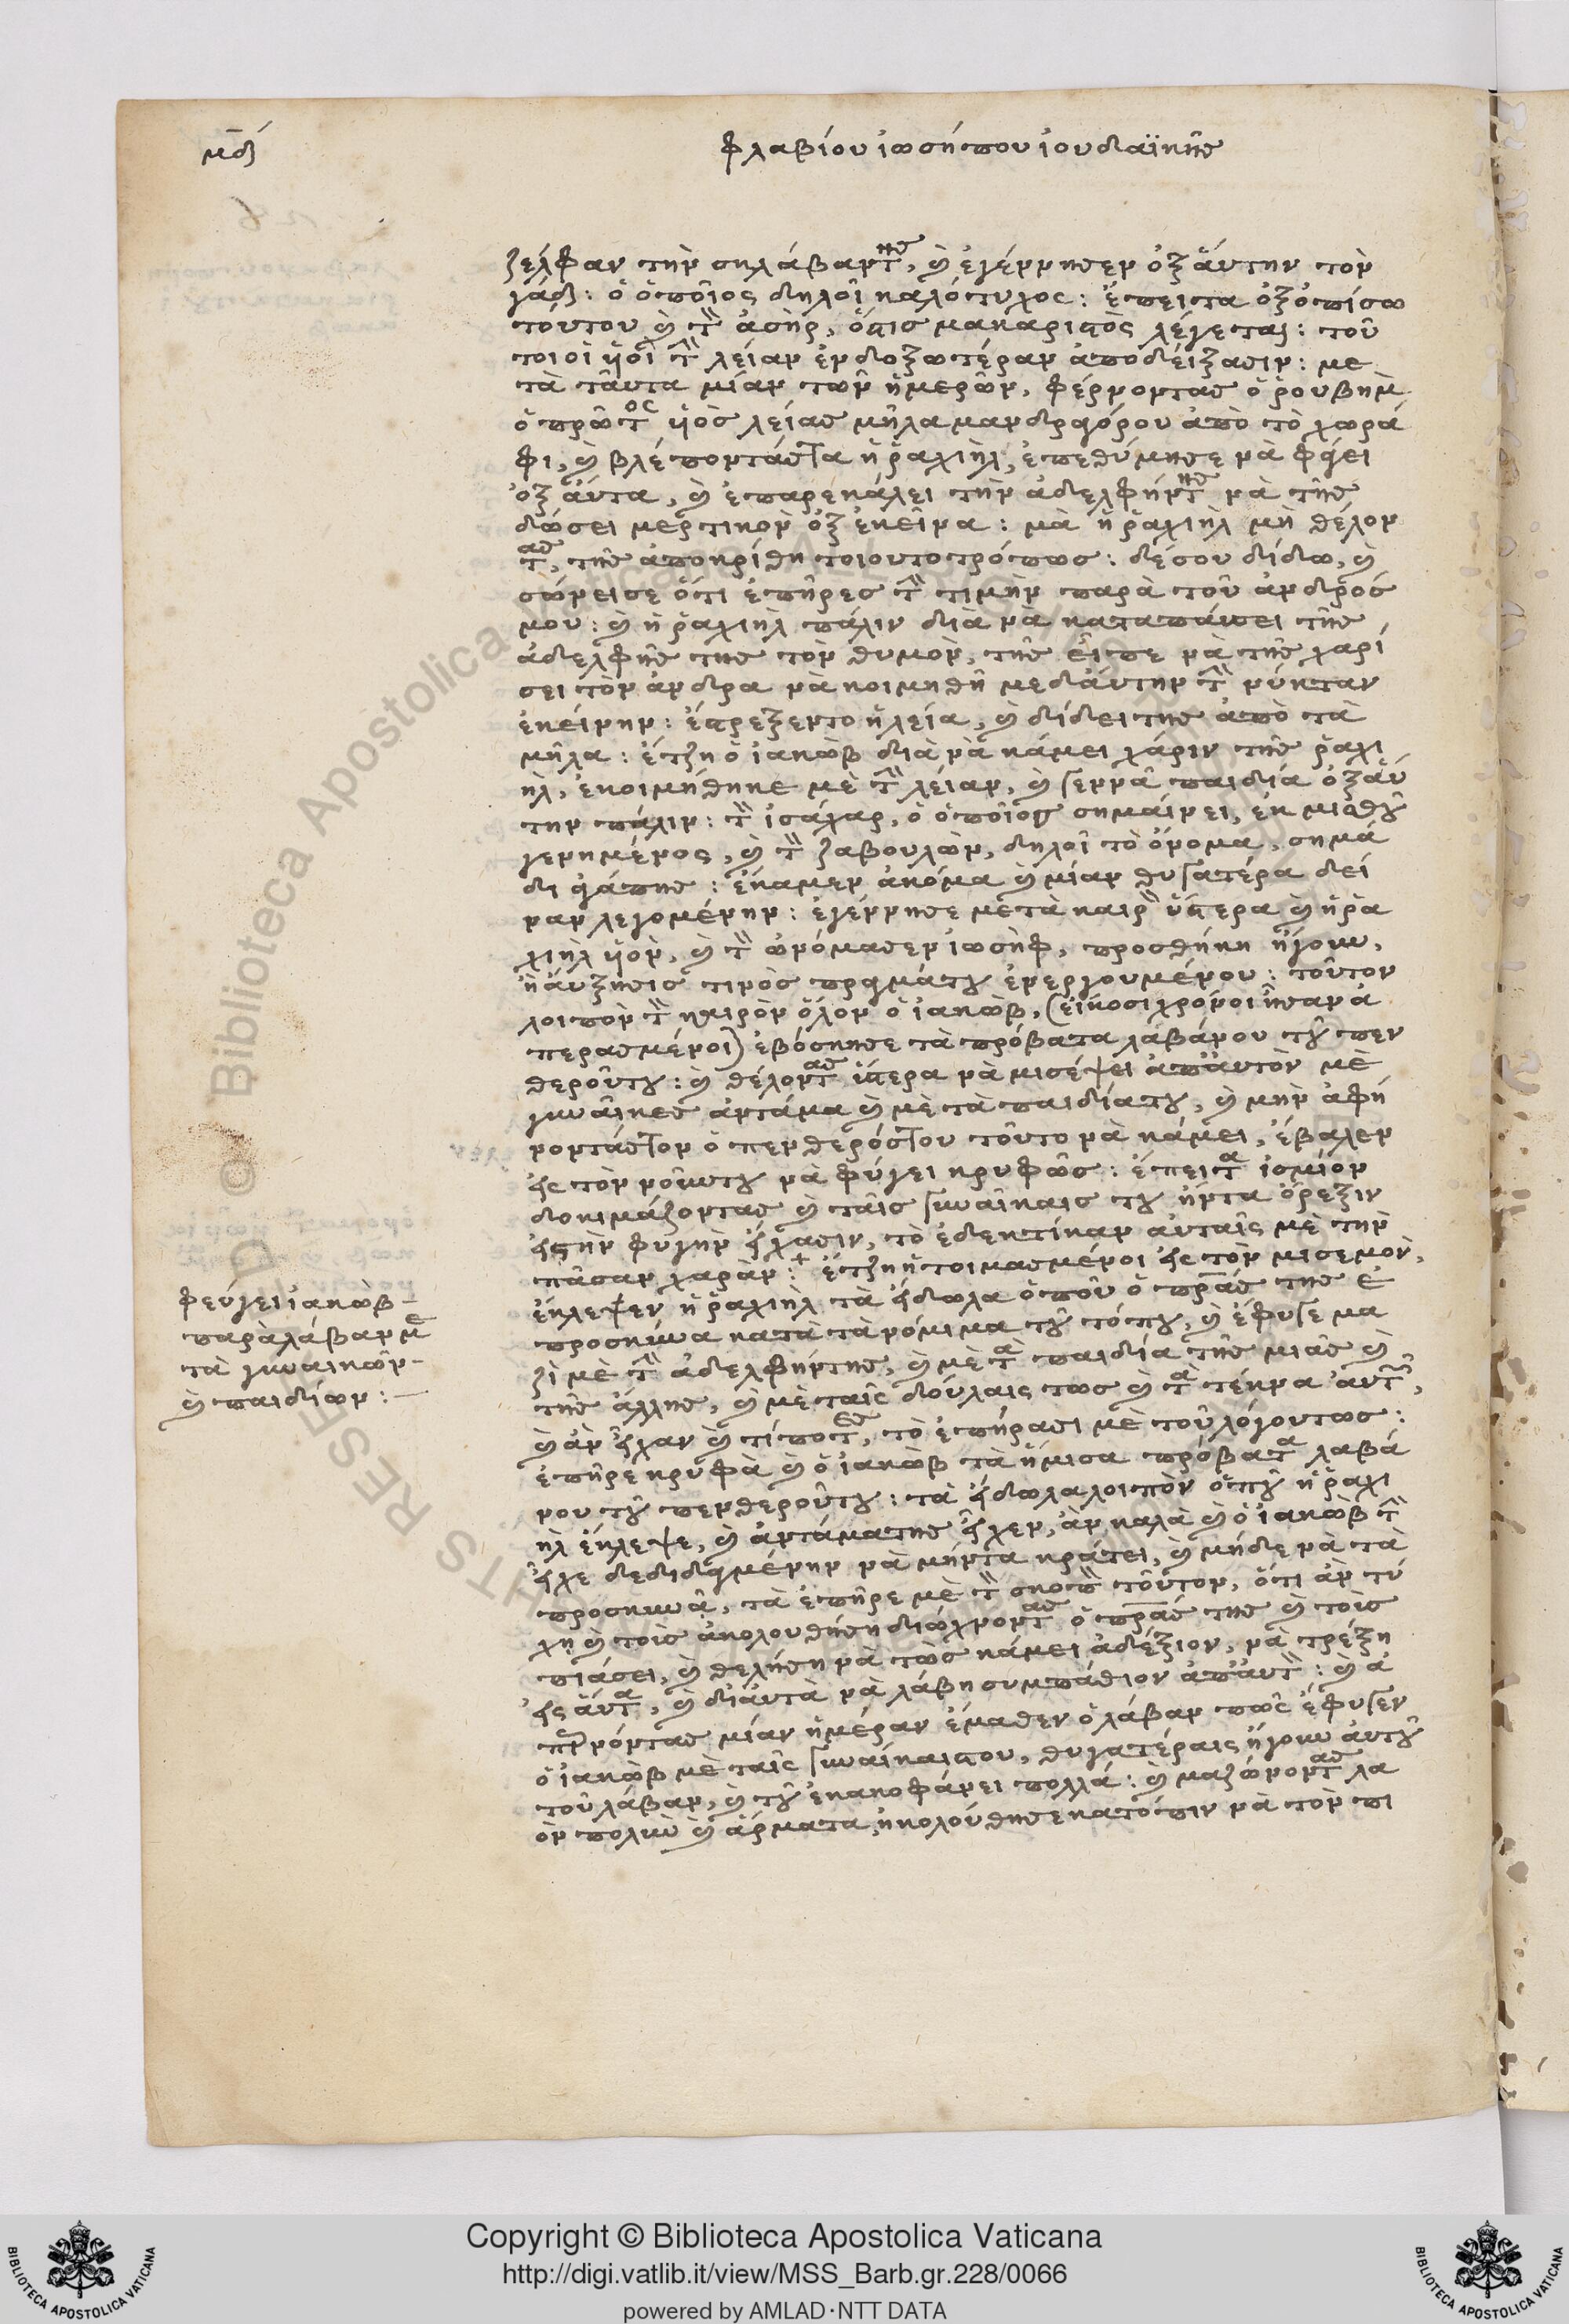 μδ
φλαβίου ἰωσήπου ἰουδαϊκῆς
ζέλφαν τὴν σκλάβαν της, καὶ ἐγέννησεν ὀξ αὐτὴν τὸν
γάδ: ὁ ὁποῖος δηλοῖ καλότυχος: ἔπειτα ὀξοπίσω
τούτου καὶ τὸν ἀσὴρ, ὅστις μακαριστὸς λέγεται: τοῦ
τοι οἱ ὑοὶ τὴν λείαν ἐνδοξωτέραν ἀποδείξασιν: με
τὰ ταῦτα μίαν τῶν ἡμερῶν, φέρνοντας ὁ ῥουβὴμ
ὁ πρῶτος ὑὸς λείας μῆλα μανδραγόρου ἀπὸ τὸ χωρά
φι, καὶ βλέποντάς τα ἡ ῥαχιὴλ, ἐπεθύμησε νὰ φάγει
ὀξ αὐτα, καὶ ἐπαρεκάλει τὴν ἀδελφήν της νὰ τῆς
δώσει μερτικὸν ὀξ ἐκεῖνα: μὰ ἡ ῥαχιὴλ μὴ θέλον
τας, τῆς ἀποκρίθη τοιουτοτρόπως: δέσου δίδω, καὶ
σώνει σε ὅτι ἐπῆρες τὴν τιμὴν παρὰ τοῦ ἀνδρός
μου: καὶ ἡ ῥαχιὴλ πάλιν διὰ νὰ καταπάψει τῆς
ἀδελφῆς της τὸν θυμὸν, τῆς εἶπε νὰ τῆς χαρί
σει τὸν ἄνδρα νὰ κοιμηθῆ μεδαύτην τὴν νύκταν
ἐκείνην: ἔστρεξεν το ἡ λεία, καὶ δίδει της ἀπὸ τὰ
μῆλα: ἔτζη ὁ ἰακὼβ διὰ νὰ κάμει χάριν τῆς ῥαχι
ὴλ, ἐκοιμήθηκε μὲ τὴν λείαν, καὶ γεννᾶ παιδιά ὀξ αὐ
την πάλιν: τὸν ἰσάχαρ, ὁ ὁποῖος σημαίνει, ἐκ μισθοῦ
γενημένος, καὶ τὸν ζαβουλὼν, δηλοῖ τὸ ὄνομα, σημά
δι ἀγάπης: ἔκαμεν ἀκόμα καὶ μίαν θυγατέρα δεί
ναν λεγομένην: ἐγέννησε μετὰ καιρὸν ὕστερα καὶ ἡ ῥα
χιὴλ ὑὸν, καὶ τὸν ὠνόμασεν ἰωσὴφ, προσθήκη ἤγουν,
ἡ αὔξησις τινὸς πράγματος ἐνεργουμένου: τοῦτον
λοιπὸν τὸν καιρὸν ὅλον ὁ ἰακὼβ, (εἴκοσι χρόνοι ἦσαν ἀ
περασμένοι) ἐβόσκησε τὰ πρόβατα λαβάνου τοῦ πεν
θεροῦ του: καὶ θέλοντας ὕστερα νὰ μισέψει ἀπ αὐτὸν μὲ
γυναῖκες ἀντάμα καὶ μὲ τὰ παιδία του, καὶ μὴν ἀφή
νοντάς τον ὁ πενθερός του τοῦτο νὰ κάμει, ἔβαλεν
εἰς τὸν νοῦν του νὰ φύγει κρυφῶς: ἔπειτα ἰσμίὸν
δοκιμάζοντας καὶ ταῖς γυναῖκαις του ἤντα ὄρεξιν
εἰς τὴν φυγὴν εἴχασιν, τὸ ἐδεκτίκαν αὐταῖς μὲ τὴν
πᾶσαν χαρὰν: + ἔτζη ἡτοιμασμένοι εἰς τὸν μισεμὸν,
ἔκλεψεν ἡ ῥαχιὴλ τὰ εἴδωλα ὁποῦ ὁ πατέρας της ἐ
προσκύνα κατὰ τὰ νόμιμα τοῦ τόπου, καὶ ἔφυγε μα
ζὶ μὲ τὴν ἀδελφήν της, καὶ μὲ τὰ παιδία τῆς μιᾶς καὶ
τῆς ἄλλης, καὶ μὲ ταῖς δούλαις τως καὶ τὰ τέκνα αὐτῶν,
καὶ ἂν εἶχαν καὶ τίποτες, τὸ ἐπήρασι μὲ τοῦ λόγου τως:
ἐπῆρε κρυφὰ καὶ ὁ ἰακὼβ τὰ ἥμισα πρόβατα λαβά
νου τοῦ πενθεροῦ του: τὰ εἴδωλα λοιπὸν ὁποῦ ἡ ῥαχι
ὴλ ἔκλεψε, καὶ ἀντάμα της εἶχεν, ἂν καλὰ καὶ ὁ ἰακὼβ τὴν
εἶχε δεδιδαγμένην νὰ μήντα κράτει, καὶ μήδε νὰ τὰ
προσκυνᾶ, τὰ ἐπῆρε μὲ τὸν σκοπὸν τοῦτον, ὅτι ἂν τύ
χη καὶ τοὺς ἀκολουθήση διώχνοντας ὁ πατέρας της καὶ τοὺς
πιάσει, καὶ θελήση νὰ τῶς κάμει ἀδέξιον, νὰ τρέξη
εἰς αὐτα, καὶ δι αὐτὰ νὰ λάβη συμπάθιον ἀπ αὐτὸν: καὶ ἀ
περνόντας μίαν ἡμέραν ἔμαθεν ὁ λάβαν πῶς ἔφυγεν
ὁ ἰακὼβ μὲ ταῖς γυναίκαις του, θυγατέραις ἤγουν αὐτοῦ
τοῦ λάβαν, καὶ τοῦ ἐκακοφάνει πολλά: καὶ μαζώνοντας λα
ὸν πολὺν καὶ ἄρματα, ἠκολούθησε κατόπιν νὰ τὸν πι
φεύγει ἰακὼβ
παρὰ λάβαν με
τὰ γυναικῶν
καὶ παιδίων:
Copyright © Biblioteca Apostolica Vaticana
http://digi.vatlib.it/view/MSS_Barb.gr.228/0066
powered by AMLAD·NTT DATA